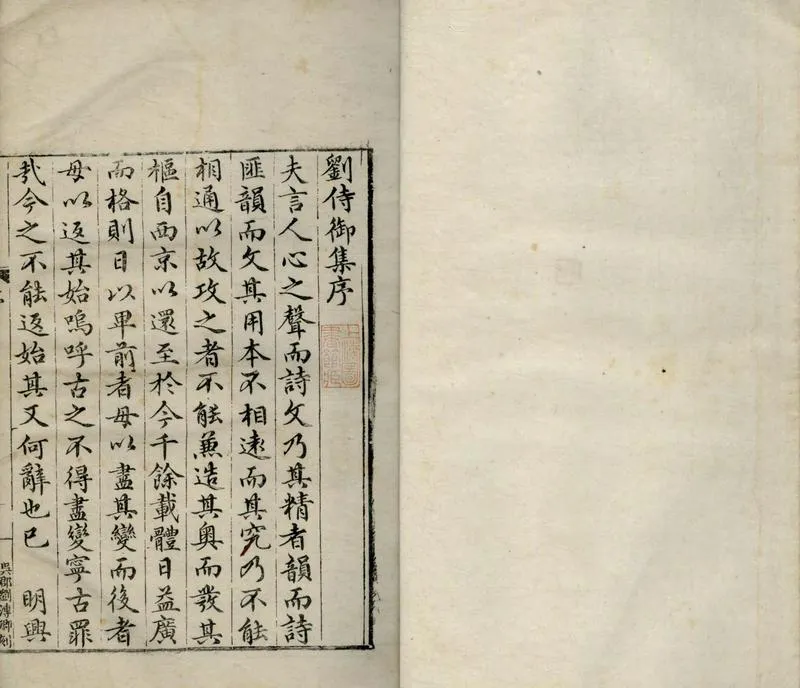 劉侍御集序
夫言人心之聲而詩文乃其精者韻而詩
匪韻而文其用本不相遠而其究乃不能
相通以故攻之者不能兼造其奧而發其
樞自西京以還至於今千餘載體日益廣
而格則日以卑前者毋以盡其變而後者
毋以返其始嗚呼古之不得盡變寧古罪
哉今之不能返始其又何辭也已 明興
吳郡劉溥卿刻
上海圖書館藏